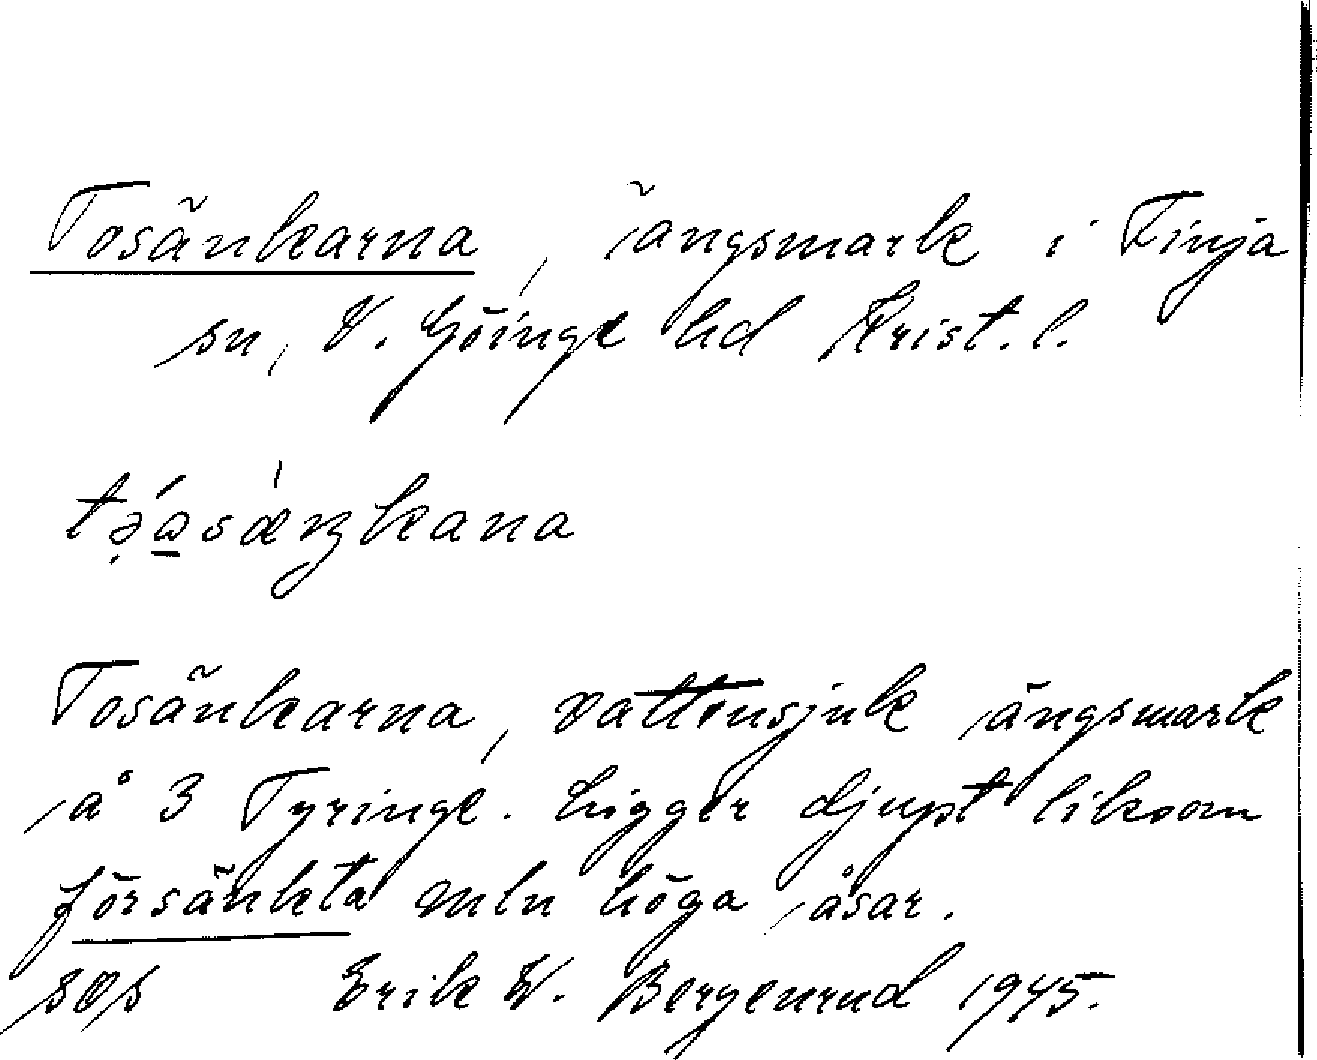 Tosänkarna, ängsmark i Finja
sn, V. Göinge hd Krist. l.
tə̣́a̱sæ̀ŋkana
Tosänkarna, vattensjuk ängsmark
å 3 Tyringe. Ligger djupt liksom
försänkta mln höga åsar.
sos Erik W. Bergenrud 1945.